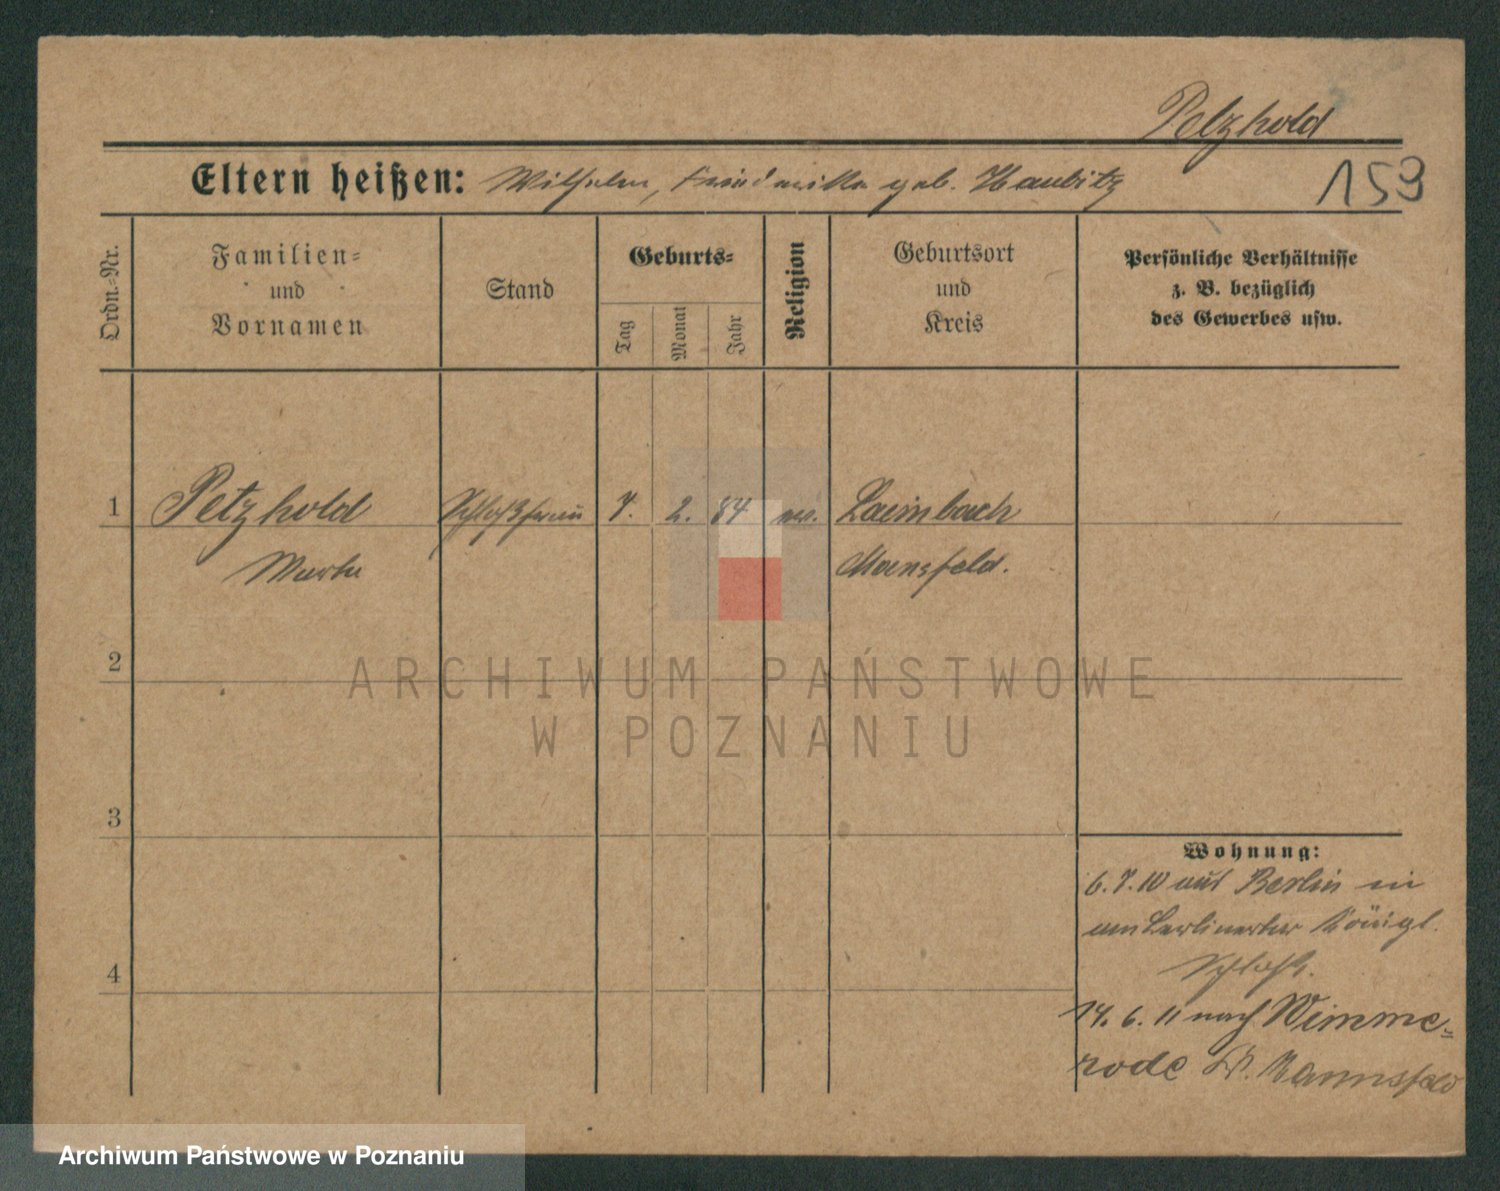 Petzhold
Eltern heißen: Wilhelm, Friederikke geb. Haubitz
159
Ordn.-Nr.
Familien-
und
Vornamen
Stand
Geburts-
Tag
Monat
Jahr
Religion
Geburtsort
und
Kreis
Persönliche Verhältnisse
z. B. bezüglich
des Gewerbes usw.
1
Petzhold
Schloßfrau
7.
2.
84
ev.
Leimbach
Marta
Mansfeld.
2
ARCHIWUM PAŃSTWOWE
W POZNANIU
3
Wohnung:
6.7.10 aus Berlin in
Königl.
4
Schloß.
14. 6. 11 nach Wimme-
rode Kr. Mannsfeld
Archiwum Państwowe w Poznaniu